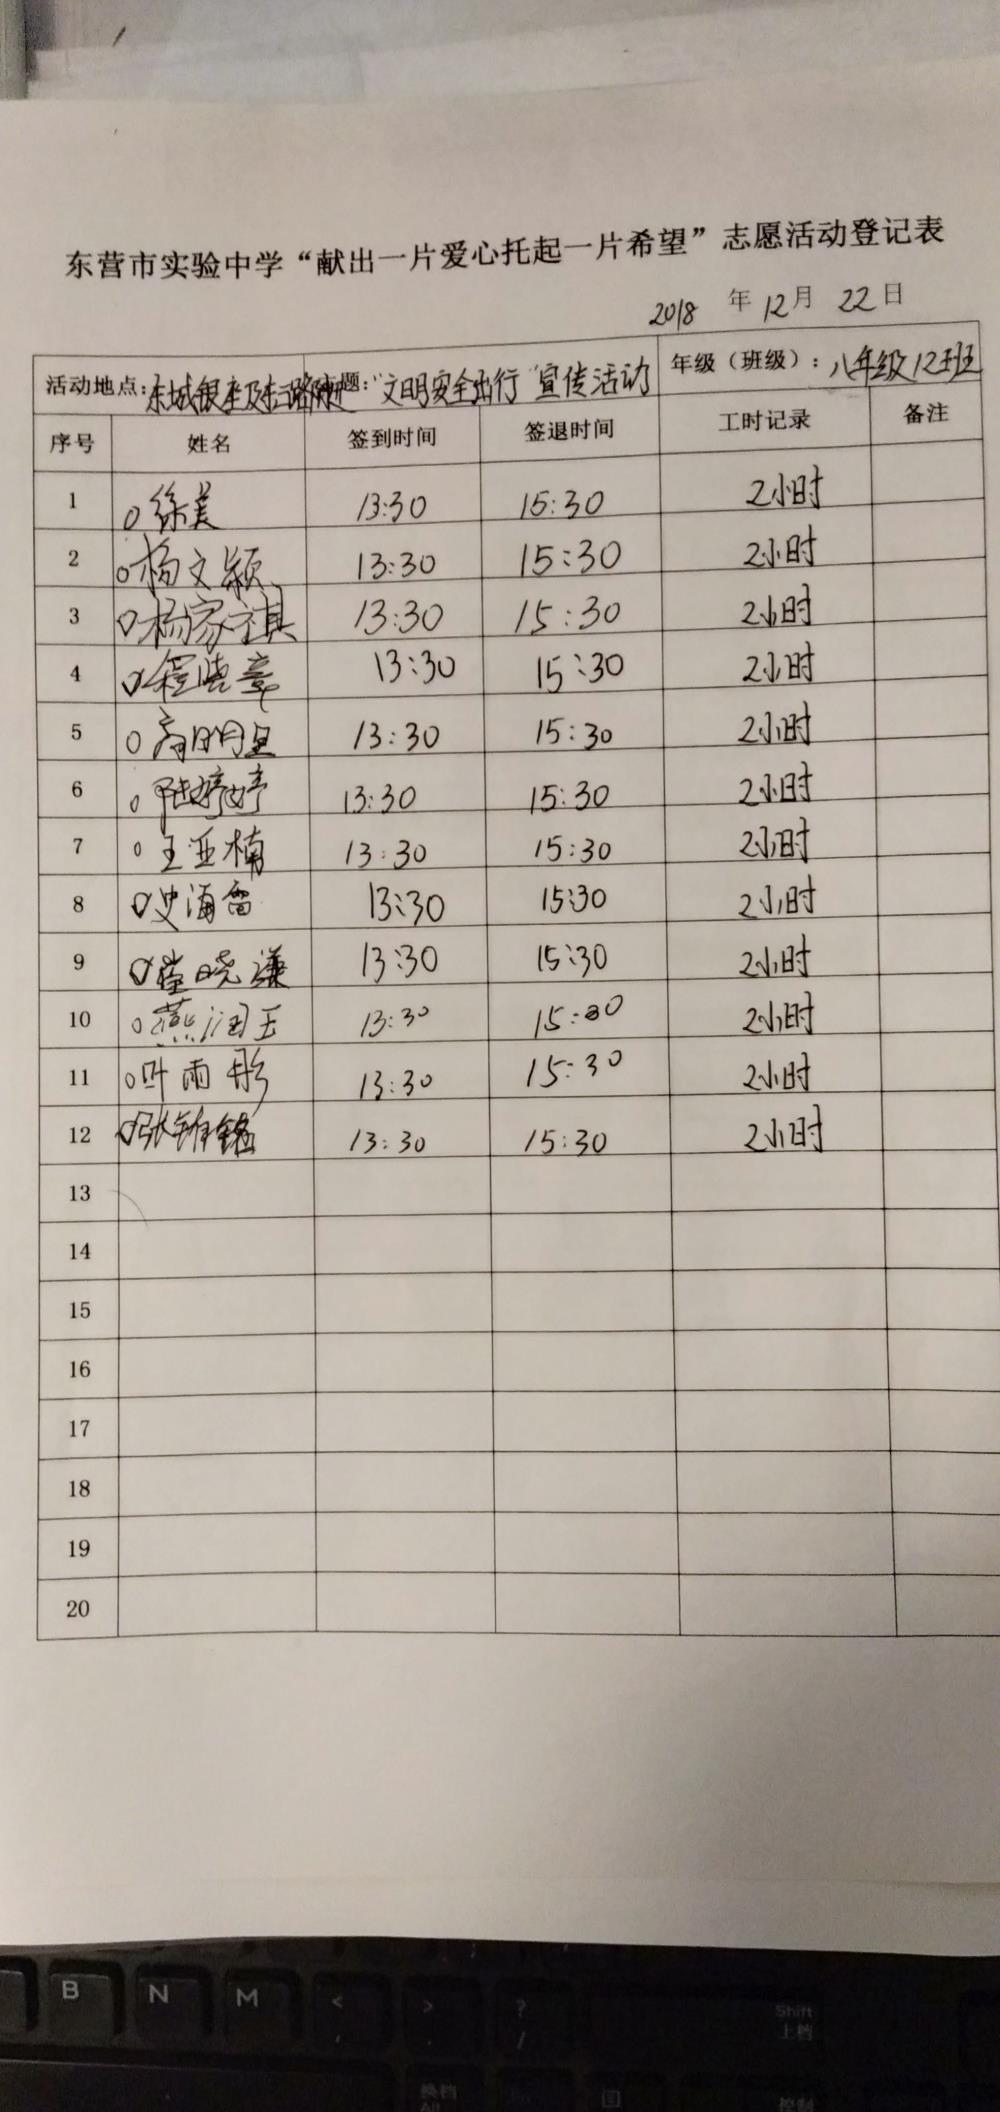 东营市实验中学“献出一片爱心托起一片希望”志愿活动登记表
2018 年 12月 22日
活动地点:东城银座及东三路附近 题:“文明安全出行”宣传活动 年级（班级）:八年级12班
序号 姓名 签到时间 签退时间 工时记录 备注
1 徐美 13:30 15:30 2小时
2 杨文颖 13:30 15:30 2小时
3 杨家祺 13:30 15:30 2小时
4 程晓 13:30 15:30 2小时
5 13:30 15:30 2小时
6 陆婷婷 13:30 15:30 2小时
7 王亚楠 13:30 15:30 2小时
8 史海雷 13:30 15:30 2小时
9 崔晓谦 13:30 15:30 2小时
10 燕润玉 13:30 15:30 2小时
11 叶雨彤 13:30 15:30 2小时
12 张 铭 13:30 15:30 2小时
13
14
15
16
17
18
19
20
B N M < , > . ? / Shift 上档
换档 Alt 控制